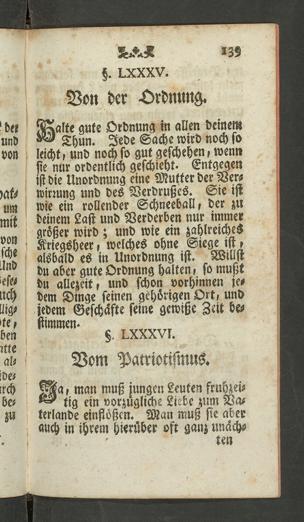 139
§. LXXXV.
Von der Ordnung.
Halte gute Ordnung in allen deinem
Thun. Jede Sache wird noch so
leicht, und noch so gut geschehen, wenn
sie nur ordentlich geschieht. Entgegen
ist die Unordnung eine Mutter der Ver-
wirrung und des Verdrußes. Sie ist
wie ein rollender Schneeball, der zu
deinem Last und Verderben nur immer
größer wird; und wie ein zahlreiches
Kriegsheer, welches ohne Siege ist,
alsbald es in Unordnung ist. Willst
du aber gute Ordnung halten, so mußt
du allezeit, und schon vorhinnen je-
dem Dinge seinen gehörigen Ort, und
jedem Geschäfte seine gewiße Zeit be-
stimmen.
§. LXXXVI.
Vom Patriotismus.
Ja, man muß jungen Leuten fruhzei-
tig ein vorzügliche Liebe zum Va-
terlande einflößen. Man muß sie aber
auch in ihrem hierüber oft ganz unäch-
ten